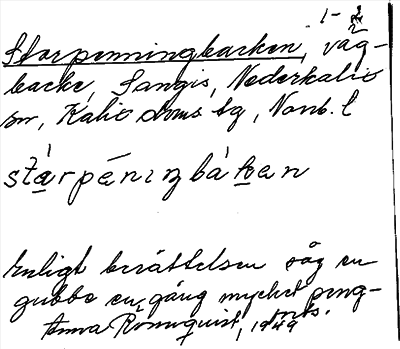 1-2
Storpenningbacken, väg-
backe, Sangis, Nederkalix
sn, Kalix dms tg, Nonb. l
stárpéniŋbàkan
Enligt berättelsen såg en
gubbe en gång mycket peng-
Anna Rönnquist, 1949